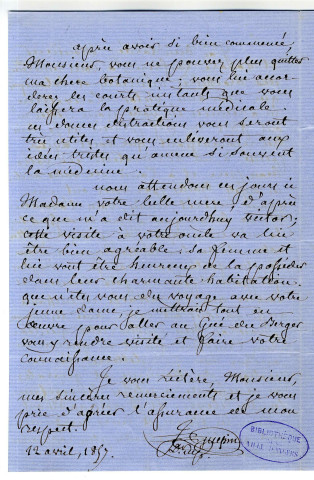 après avoir si bien commencé,
Monsieur, vous ne pouvez plus quitter
ma chere botanique; vous lui accor-
derez les courts instants que vous
laissera la pratique médicale.
ces douces distractions vous seront
très utiles et vous enlèveront aux
idées tristes qu'amene si souvent
la médecine.
nous attendons ces jours ci
Madame votre belle mere, d'après
ce que m'a dit aujourdhuy Victor;
cette visite à votre oncle va lui
être bien agréable; sa femme et
lui vont être heureux de la posséder
dans leur charmante habitation.
que n'êtes vous du voyage avec votre
jeune dame, je mettrois tout en
oeuvre pour aller au Gué du Berger
vous y rendre visite et faire votre
connaissance.
Je vous réitère, Monsieur,
mes sincères remerciements et je vous
prie d'agréer l'assurance de mon
respect.
12 avril, 1857.
BIBLIOTHEQUE
VILLE D'ANGERS